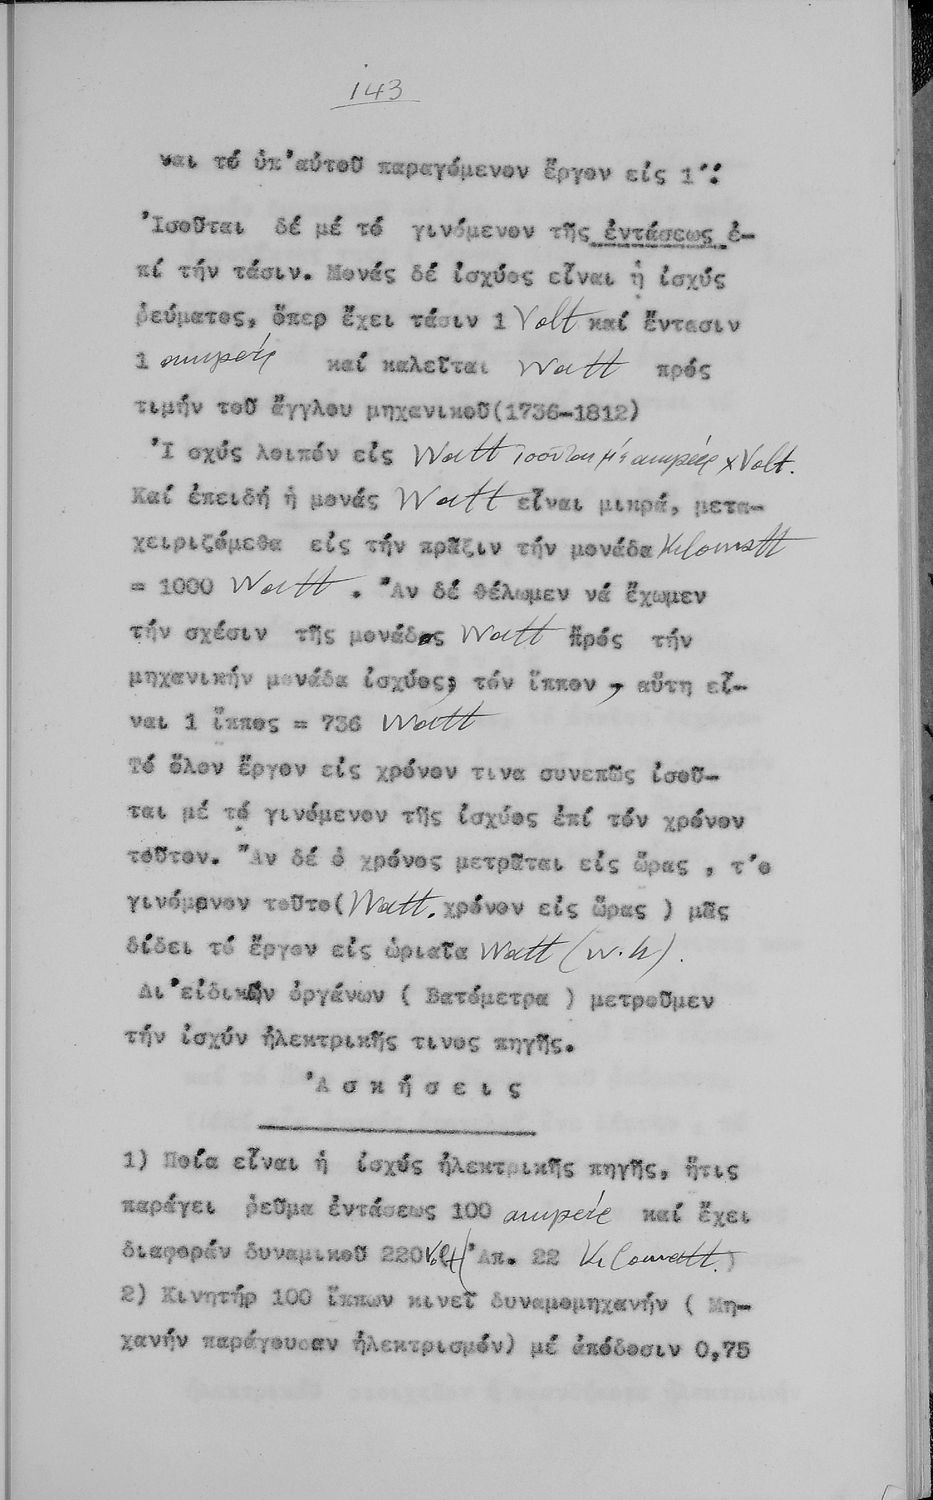 143
ναι τό ὑπ'αὐτοῦ παραγόμενον ἔργον εἰς 1'':
Ἰσοῦται δέ μέ τό γινόμενον τῆς ἐντάσεως ἐ-
πί τήν τάσιν. Μονάς δέ ἰσχύος εἶναι ἡ ἰσχύς
ῥεύματος, ὅπερ ἔχει τάσιν 1 Volt καί ἔντασιν
1 ampère καί καλεῖται Watt πρός
τιμήν τοῦ ἄγγλου μηχανικοῦ(1736-1812)
Ἰ σχύς λοιπόν εἰς Watt ἰσοῦται μέ ampère x Volt.
Καί ἐπειδή ἡ μονάς Watt εἶναι μικρά, μετα-
χειριζόμεθα εἰς τήν πρᾶξιν τήν μονάδα Kilowatt
= 1000 Watt . Ἄν δέ θέλωμεν νά ἔχωμεν
τήν σχέσιν τῆς μονάδος Watt πρός τήν
μηχανικήν μονάδα ἰσχύος, τόν ἵππον , αὕτη εἶ-
ναι 1 ἵππος = 736 Watt
Τό ὅλον ἔργον εἰς χρόνον τινα συνεπῶς ἰσοῦ-
ται μέ τό γινόμενον τῆς ἰσχύος ἐπί τόν χρόνον
τοῦτον. Ἄν δέ ὁ χρόνος μετρᾶται εἰς ὥρας , τ'ο
γινόμενον τοῦτο( Watt. χρόνον εἰς ὥρας ) μᾶς
δίδει τό ἔργον εἰς ὡριαῖα Watt (w.h).
Δι'εἰδικῶν ὀργάνων ( Βατόμετρα ) μετροῦμεν
τήν ἰσχύν ἠλεκτρικῆς τινος πηγῆς.
Ἀ σ κ ή σ ε ι ς
1) Ποία εἶναι ἡ ἰσχύς ἠλεκτρικῆς πηγῆς, ἥτις
παράγει ῥεῦμα ἐντάσεως 100 ampère καί ἔχει
διαφοράν δυναμικοῦ 220 Volt (Ἀπ. 22 Kilowatt.)
2) Κινητήρ 100 ἵππων κινεῖ δυναμομηχανήν ( Μη-
χανήν παράγουσαν ἠλεκτρισμόν) μέ ἀπόδοσιν 0,75